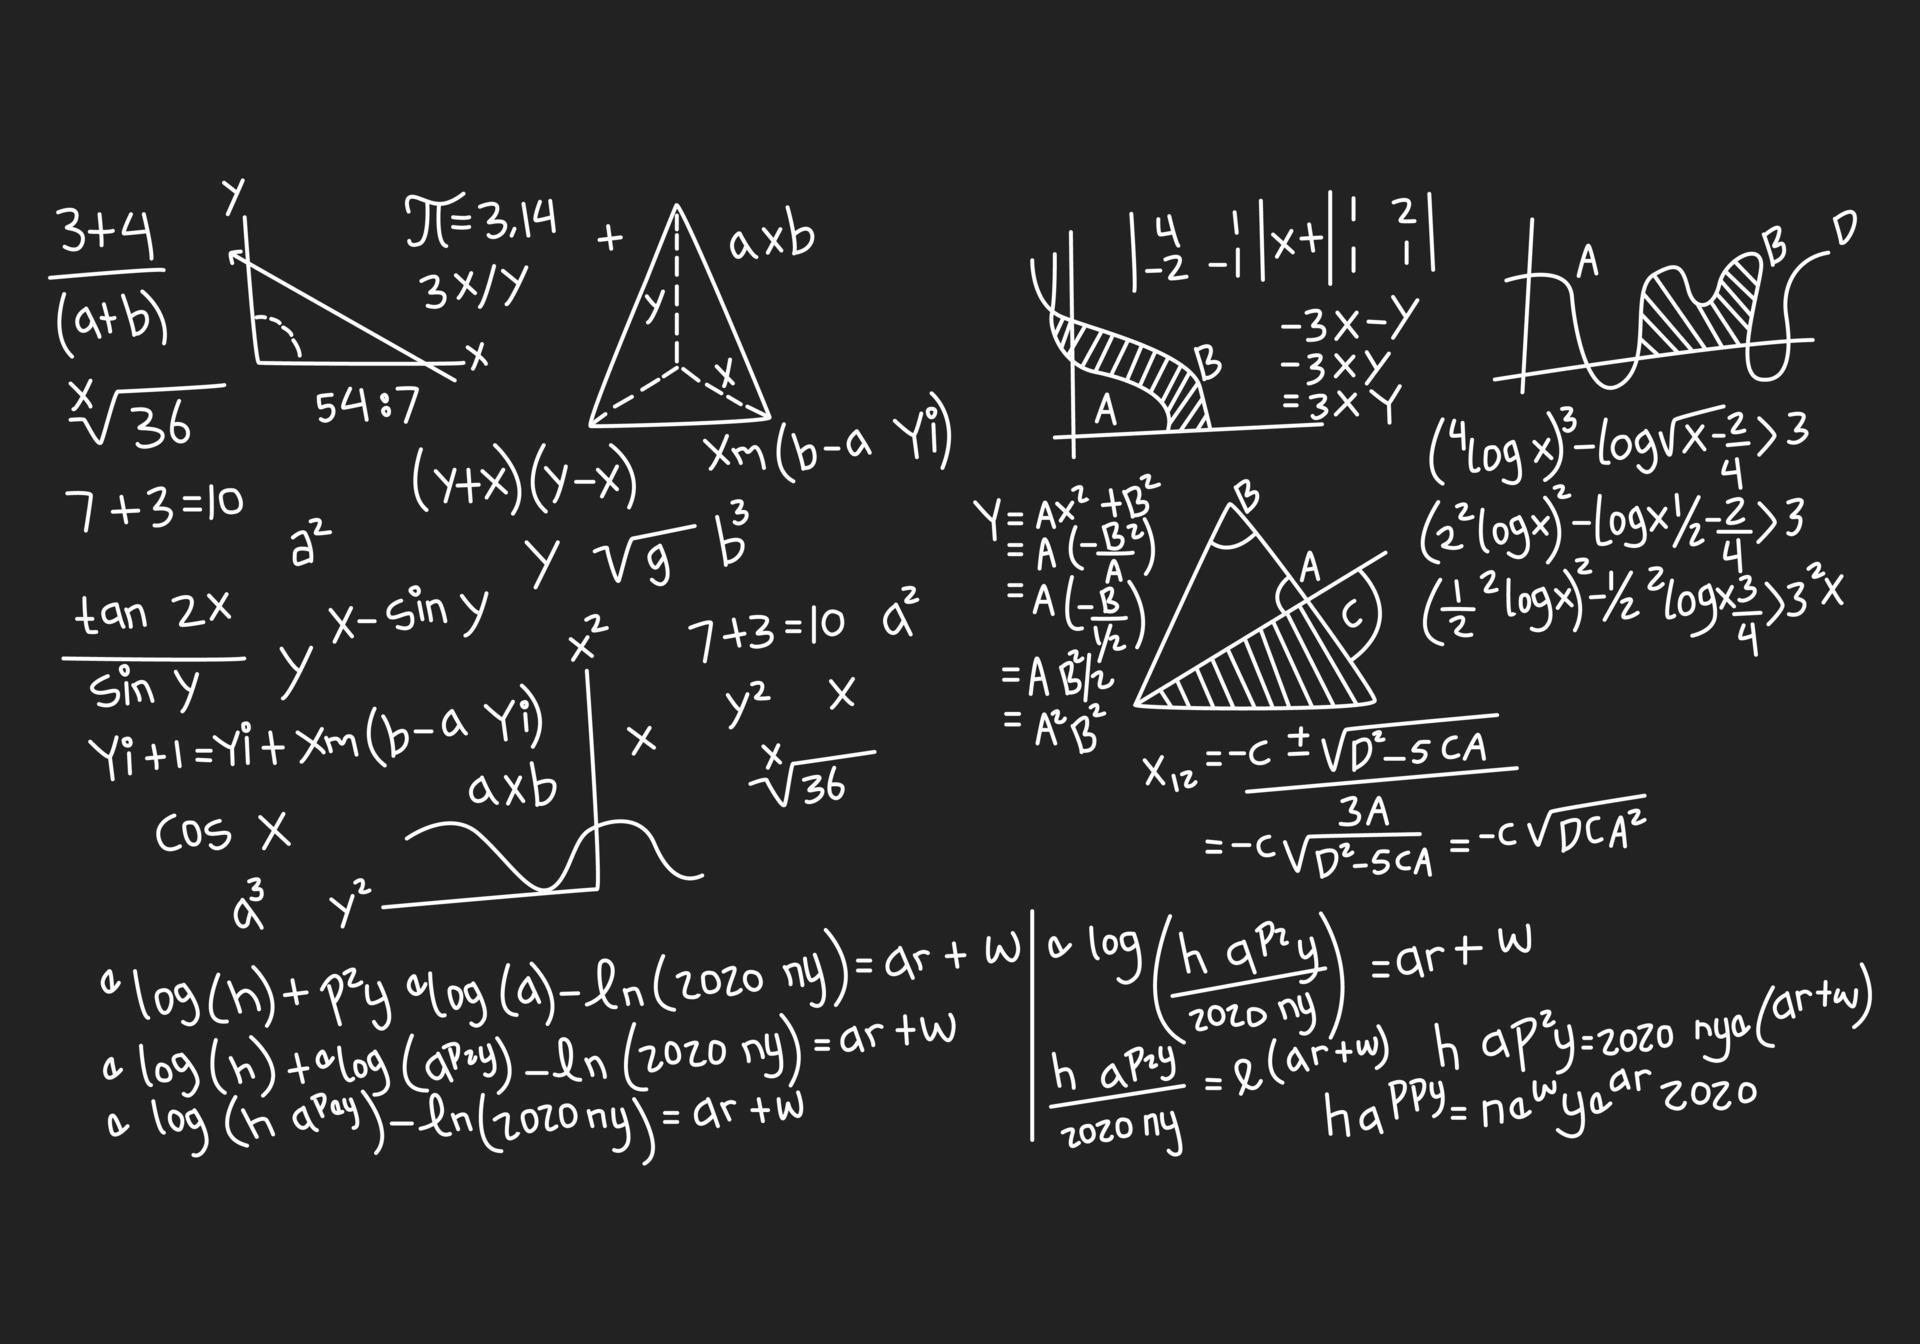 3+4
(a+b)
y
x
54:7
π=3,14
3x/y
+
y
x
axb
x√36
(y+x)(y-x)
Xm(b-a Yi)
7+3=10
a²
y √g b³
tan 2x
sin y
y
x-sin y
x²
7+3=10 a²
Yi+1=Yi+Xm(b-a Yi)
axb
x
y² x
x√36
cos x
a³ y²
|4 1| x+ |1 2|
|-2 -1| |1 1|
-3x-y
-3xy
=3xy
A
B
A
B
D
(⁴log x)³-log√x-2/4>3
(2²logx)²-logx½-2/4>3
(1/2 ²logx)²-½ ²logx3/4>3²x
Y=Ax²+B²
=A(-B²/A)
=A(-B/½)
=A B²/½
=A²B²
B
A
C
x₁₂=-c ± √D²-5CA
3A
=-c√D²-5CA =-c√DCA²
e log(h)+p²y elog(a)-ln(2020 ny)=ar+w
e log(h)+elog(aᵖ²ʸ)-ln(2020 ny)=ar+w
e log(h aᵖᵉʸ)-ln(2020 ny)=ar+w
e log(h aᵖ²y/2020 ny)=ar+w
h aᵖ²ʸ/2020 ny=e(ar+w)
h ap²y=2020 nye(ar+w)
haᴾᴾʸ=neʷyeᵃʳ2020